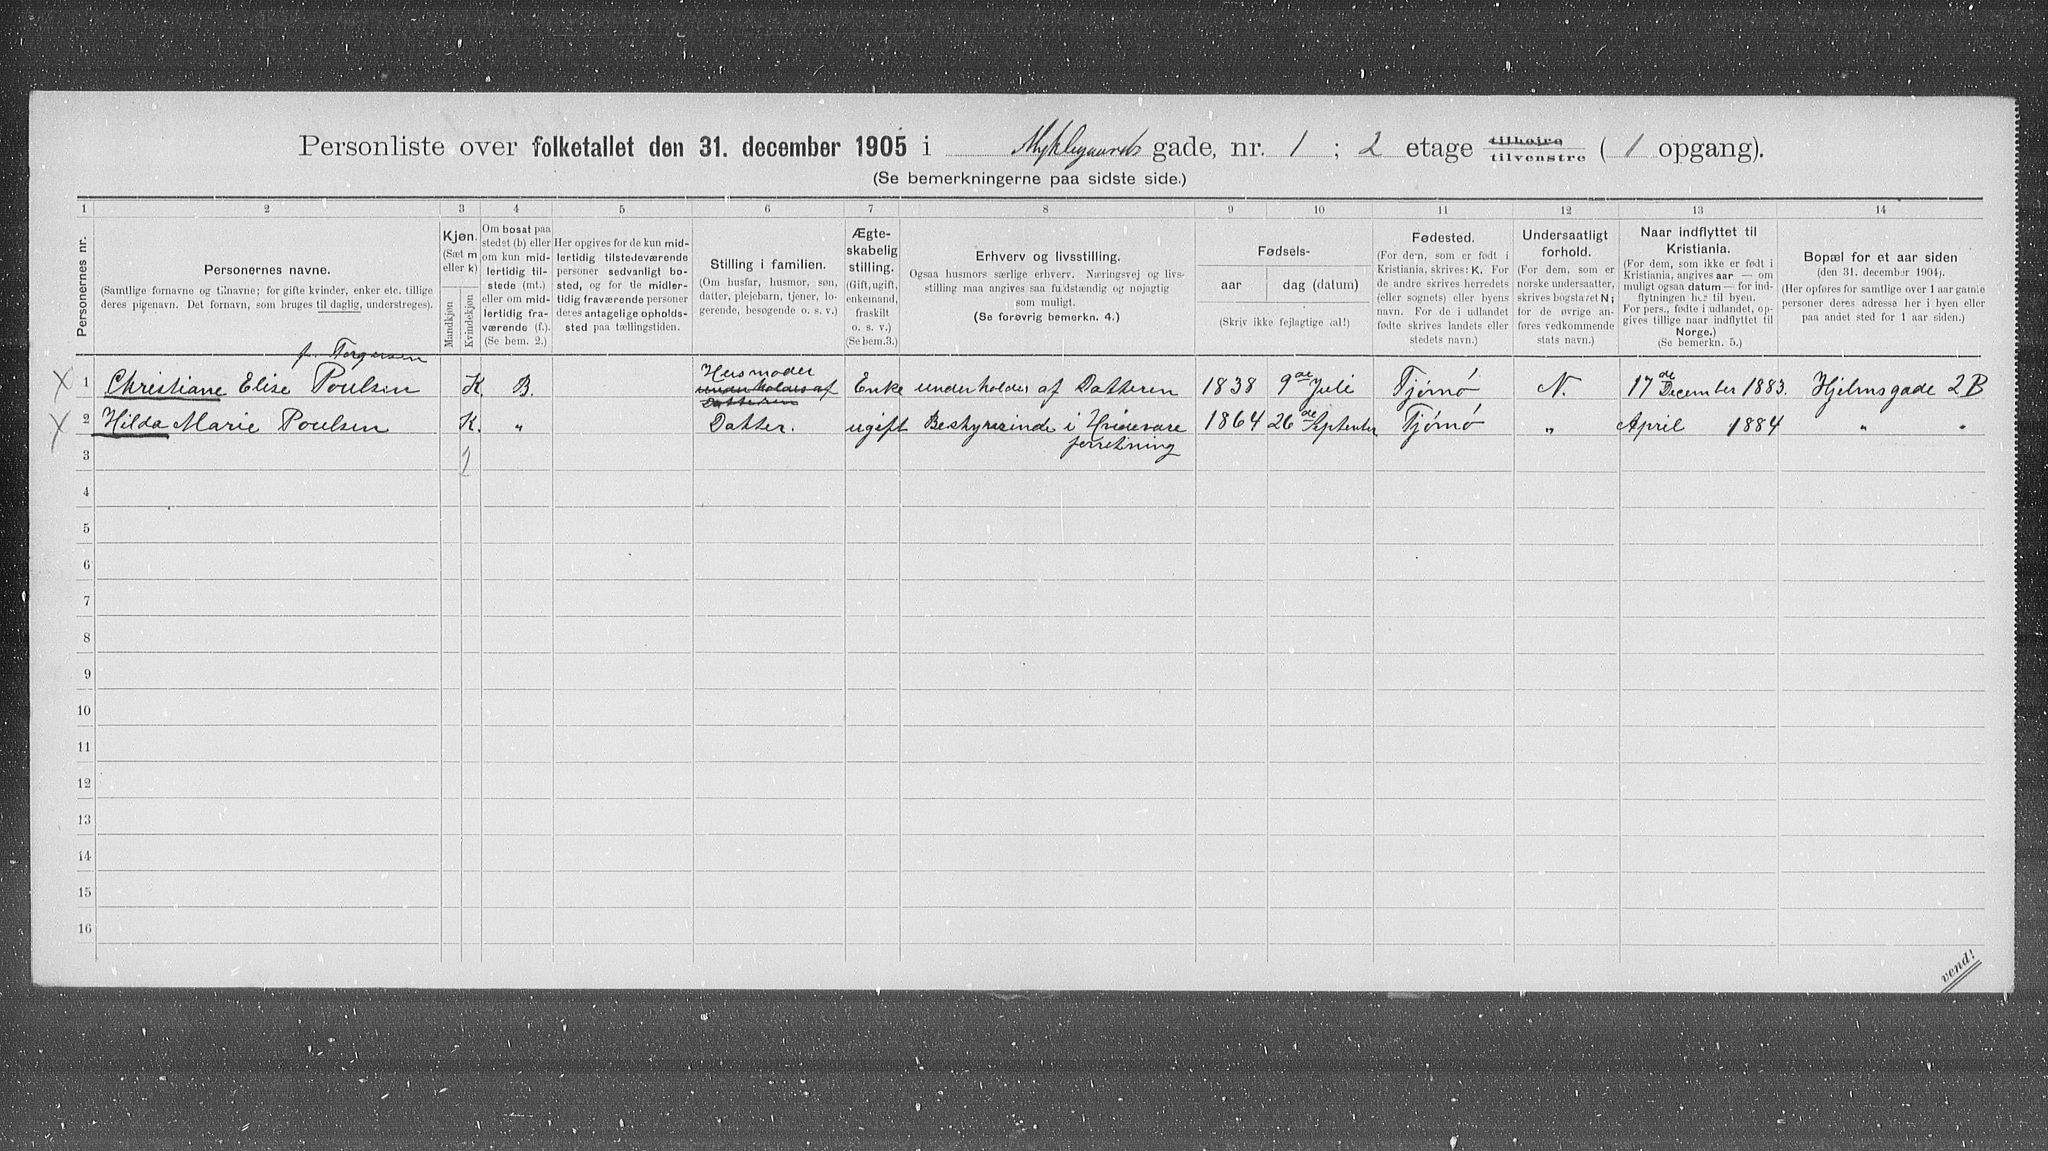 Personliste over folketallet den 31. december 1905 i Myklegaards gade, nr. 1 ; 2 etage tilhøire tilvenstre ( 1 opgang).
(Se bemerkningerne paa sidste side.)
1 2 3 4 5 6 7 8 9 10 11 12 13 14
Personernes nr.
Personernes navne.
(Samtlige fornavne og tilnavne; for gifte kvinder, enker etc. tillige
deres pigenavn. Det fornavn, som bruges til daglig, understreges).
Kjøn.
(Sæt m
eller k)
Mandkjøn
Kvindekjøn
Om bosat paa
stedet (b) eller
om kun mid-
lertidig til-
stede (mt.)
eller om mid-
lertidig fra-
værende (f.).
(Se bem. 2.)
Her opgives for de kun mid-
lertidig tilstedeværende
personer sedvanligt bo-
sted, og for de midler-
tidig fraværende personer
deres antagelige opholds-
sted paa tællingstiden.
Stilling i familien.
(Om husfar, husmor, søn,
datter, plejebarn, tjener, lo-
gerende, besøgende o. s. v.)
Ægte-
skabelig
stilling.
(Gift, ugift,
enkenand,
fraskilt
o. s. v.)
(Se bem.3.)
Erhverv og livsstilling.
Ogsaa husmors særlige erhverv. Næringsvej og livs-
stilling maa angives saa fuldstændig og nøjagtig
som muligt.
(Se forøvrig bemerkn. 4.)
Fødsels-
aar dag (datum)
(Skriv ikke fejlagtige tal!)
Fødested.
(For dem, som er født i
Kristiania, skrives: K. For
de andre skrives herredets
(eller sognets) eller byens
navn. For de i udlandet
fødte skrives landets eller
stedets navn.)
Undersaatligt
forhold.
(For dem, som er
norske undersaatter,
skrives bogstavet N;
for de øvrige an-
føres vedkommende
stats navn.)
Naar indflyttet til
Kristiania.
(For dem, som ikke er født i
Kristiania, angives aar — om
muligt ogsaa datum — for ind-
flytningen her til byen.
For pers., fødte i udlandet, op-
gives tillige naar indflyttet til
Norge.)
(Se bemerkn. 5.)
Bopæl for et aar siden
(den 31. december 1904).
(Her opføres for samtlige over 1 aar gamle
personer deres adresse her i byen eller
paa andet sted for 1 aar siden.)
f. Torgersen
Husmoder
X 1 Christiane Elise Poulsen K. B. underholdes af Datteren Enke underholdes af Datteren 1838 9de Juli Tjømø N. 17de December 1883. Hjelmsgade 2B
X 2 Hilda Marie Poulsen K. „ Datter. ugift Bestyrerinde i Hvidevare 1864 26de September Tjømø „ April 1884 „ „
forretning
3 2
4
5
6
7
8
9
10
11
12
13
14
15
16
vend!